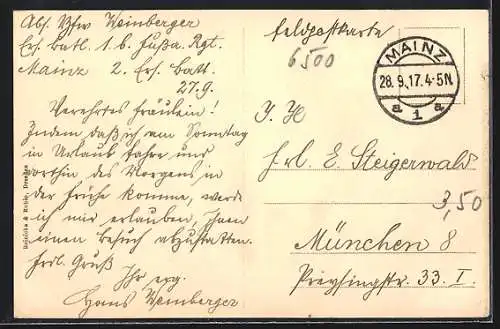 Abs. Vzfw Weinberger
Ers. Batl. 1. b. Fußa. Rgt.
Mainz 2. Ers. Batt.
27.9.
Verehrtes Fräulein!
Indem daß ich am Sonntag
in Urlaub fahre und
dorthin des Morgens in
der Frühe komme, werde
ich mir erlauben, Ihnen
einen Besuch abzustatten.
Frdl. Gruß
Ihr erg.
Hans Weinberger
Feldpostkarte
6500
MAINZ
28.9.17.4-5N.
a 1 a
I. H.
Frl. E. Steigerwald
3,50
München 8
Preysingstr. 33. I.
Reinicke & Rubin, Dresden